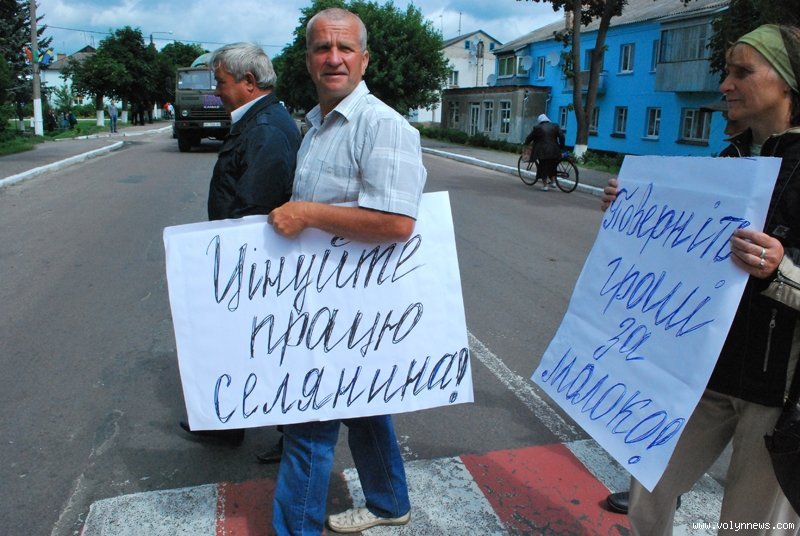 Цінуйте
працю
селянина!
Поверніть
гроші
за
молоко!
www.volynnews.com